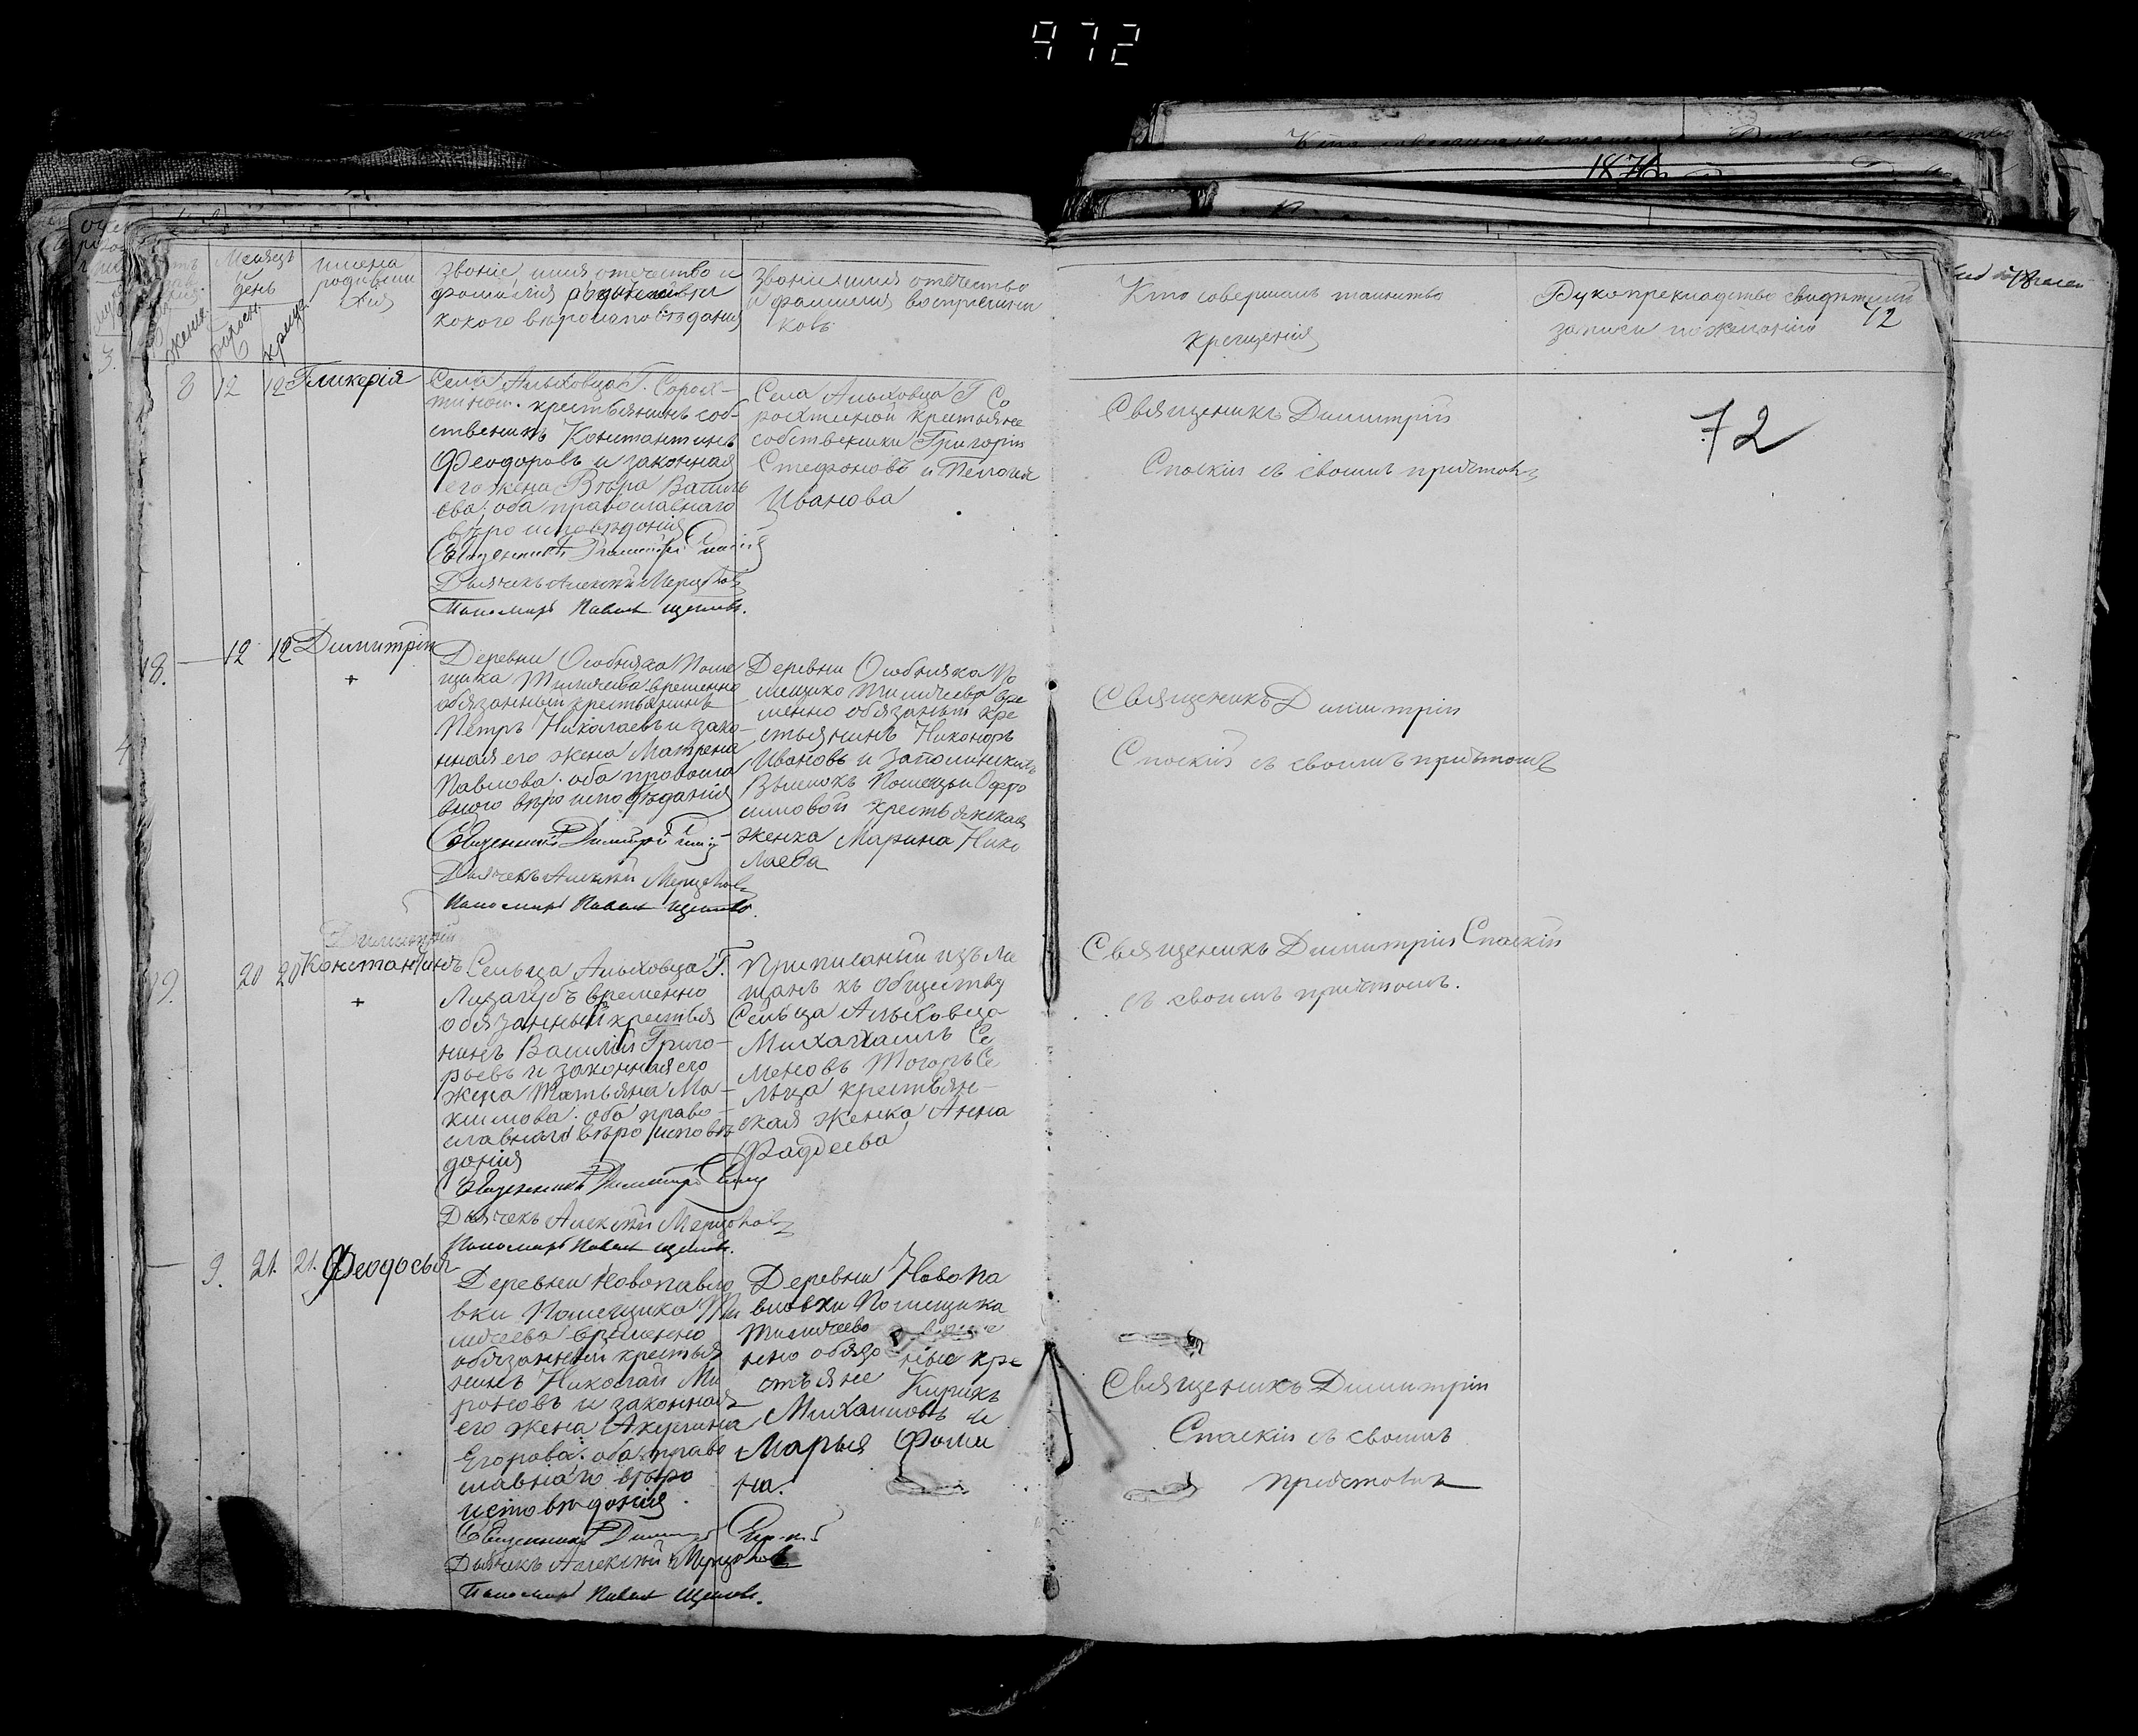 972
1876
Месяцъ
день
имена
родивши
хся
звоніе, имя, отечество и
фомилія родителей и
кокого вероисповѣдания
звоніе имя отечество
и фомилия восприемни
ковъ
Кто совершилъ таинство
крещенія
Рукоприкладство свидѣтелей
записи по желонію
72
8 12 12 Гликерія
Села Альховца Г. Сорох-
тиной крестьянинъ соб-
ственикъ Константинъ
Феодоровъ и законная
его жена Вѣра Василь
ева: оба православнаго
вѣроисповѣдонія
Священникъ Димитрій Спаскій
Дьячекъ Алексѣй Мерцовъ
Пономарь Павелъ
Села Альховца Г Со
рохтиной крестьяне
собственики Григорій
Стефоновъ и Пелогия
Иванова
Священикъ Димитрій
Споскій съ своимъ причтомъ
72
18. — 12 12 Димитрій
+
Деревни Особняка Поме
щика Тиличеева временно
обязанный крестьянинъ
Петръ Николаевъ и зако-
нная его жена Матрена
Павлова: оба провосла
вного вѣроисповѣдания
Священникъ Димитрій
Дьячекъ Алексѣй Мерцовъ
Пономарь Павелъ
Деревни Особняка По
мещико Тиличеева вре
менно обязаный кре
стьянинъ Никоноръ
Ивановъ и
Помещьи Офро
симовой крестьянская
женка Марина Нико
лаева
Священикъ Димитрій
Споскій съ своимъ причтомъ
19. 20 20
Димитрій
Константинъ
+
Сельца Альховца Г.
Лизагубъ временно
обязанный крестья
нинъ Василій Григо-
рьевъ и законная его
жена Татьяна Ма-
ксимова: оба право-
славнаго вѣроисповѣ
дония
Священникъ Димитрій
Дьячекъ Алексѣй Мерцовъ
Пономарь Павелъ
Приписаный изъ ме
щанъ къ обществу
Сельца Альховца
Михаилъ Се
меновъ Тогожъ Се
льца крестьян-
ская женка Анна
Фадеева
Священикъ Димитрій Споскій
съ своимъ причтомъ.
— 9. 21. 21. Феодосья
Деревни Новопавло
вки Помещико Ти
личеева временно
обязанный крестья
нинъ Николай Ми
роновъ и законная
его жена Акулина
Егорова: оба право
славнаго вѣро
исповѣдония.
Священникъ Димитрій
Дьячекъ Алексѣй Мерцовъ
Пономарь Павелъ
Деревни Новопа
вловки Помещика
Тиличеево време
нно обязоные кре
стьяне Кирикъ
Михаиловъ и
Марья Фоми
на.
Священикъ Димитрій
Споскій съ своимъ
причтомъ